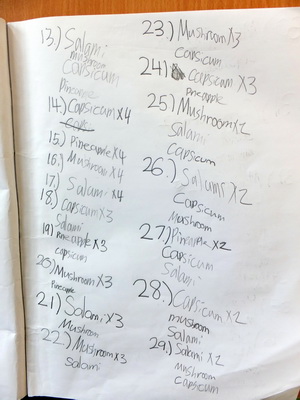 13.) Salami
mushroom
Capsicum
Pineapple
14.) Capsicum x4
15.) Pinecapple x4
16.) Mushroom x4
17.) Salami x4
18.) Capsicum x3
Salami
19) Pineapple x3
capsicum
20) Mushroom x3
Pineapple
21.) Salami x3
Mushroom
22.) Mushroom x3
Salami
23.) Mushroom x3
Capsicum
24.) Capsicum x3
Pineapple
25.) Mushroom x2
Salami
Capsicum
26.) Salami x2
Capsicum
Mushroom
27.) Pineapple x2
Capsicum
Salami
28.) Capsicum x2
mushroom
Salami
29.) Salami x2
Mushroom
Capsicum